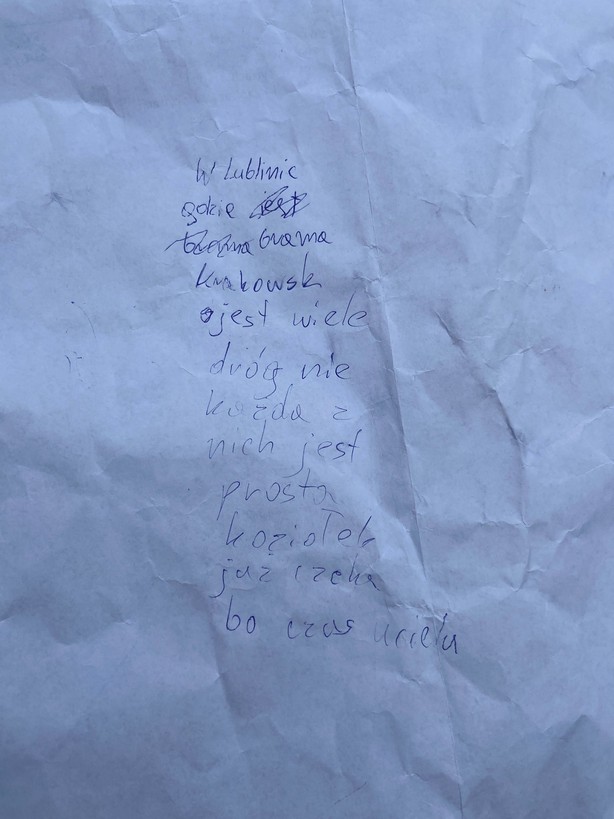 W Lublinie
gdzie jest
brama brama
Krakowsk
jest wiele
dróg nie
każda z
nich jest
prosta
koziołek
już czeka
bo czas ucieka